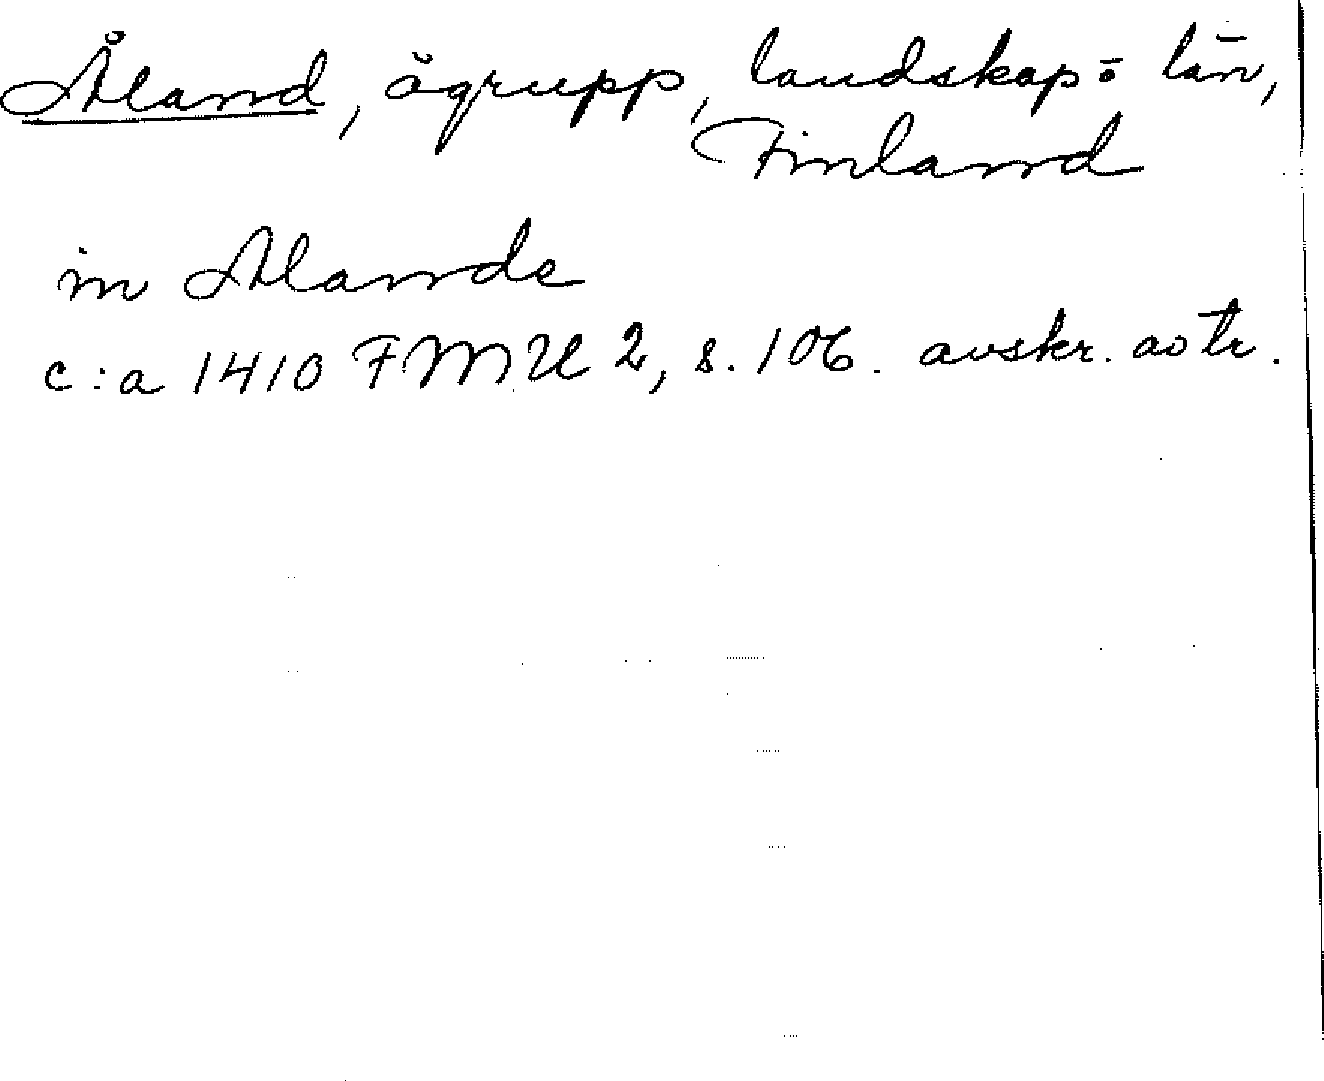 Åland, ögrupp, landskap o län,
Finland
in Alande
c:a 1410 FMU 2, s. 106. avskr. av tr.